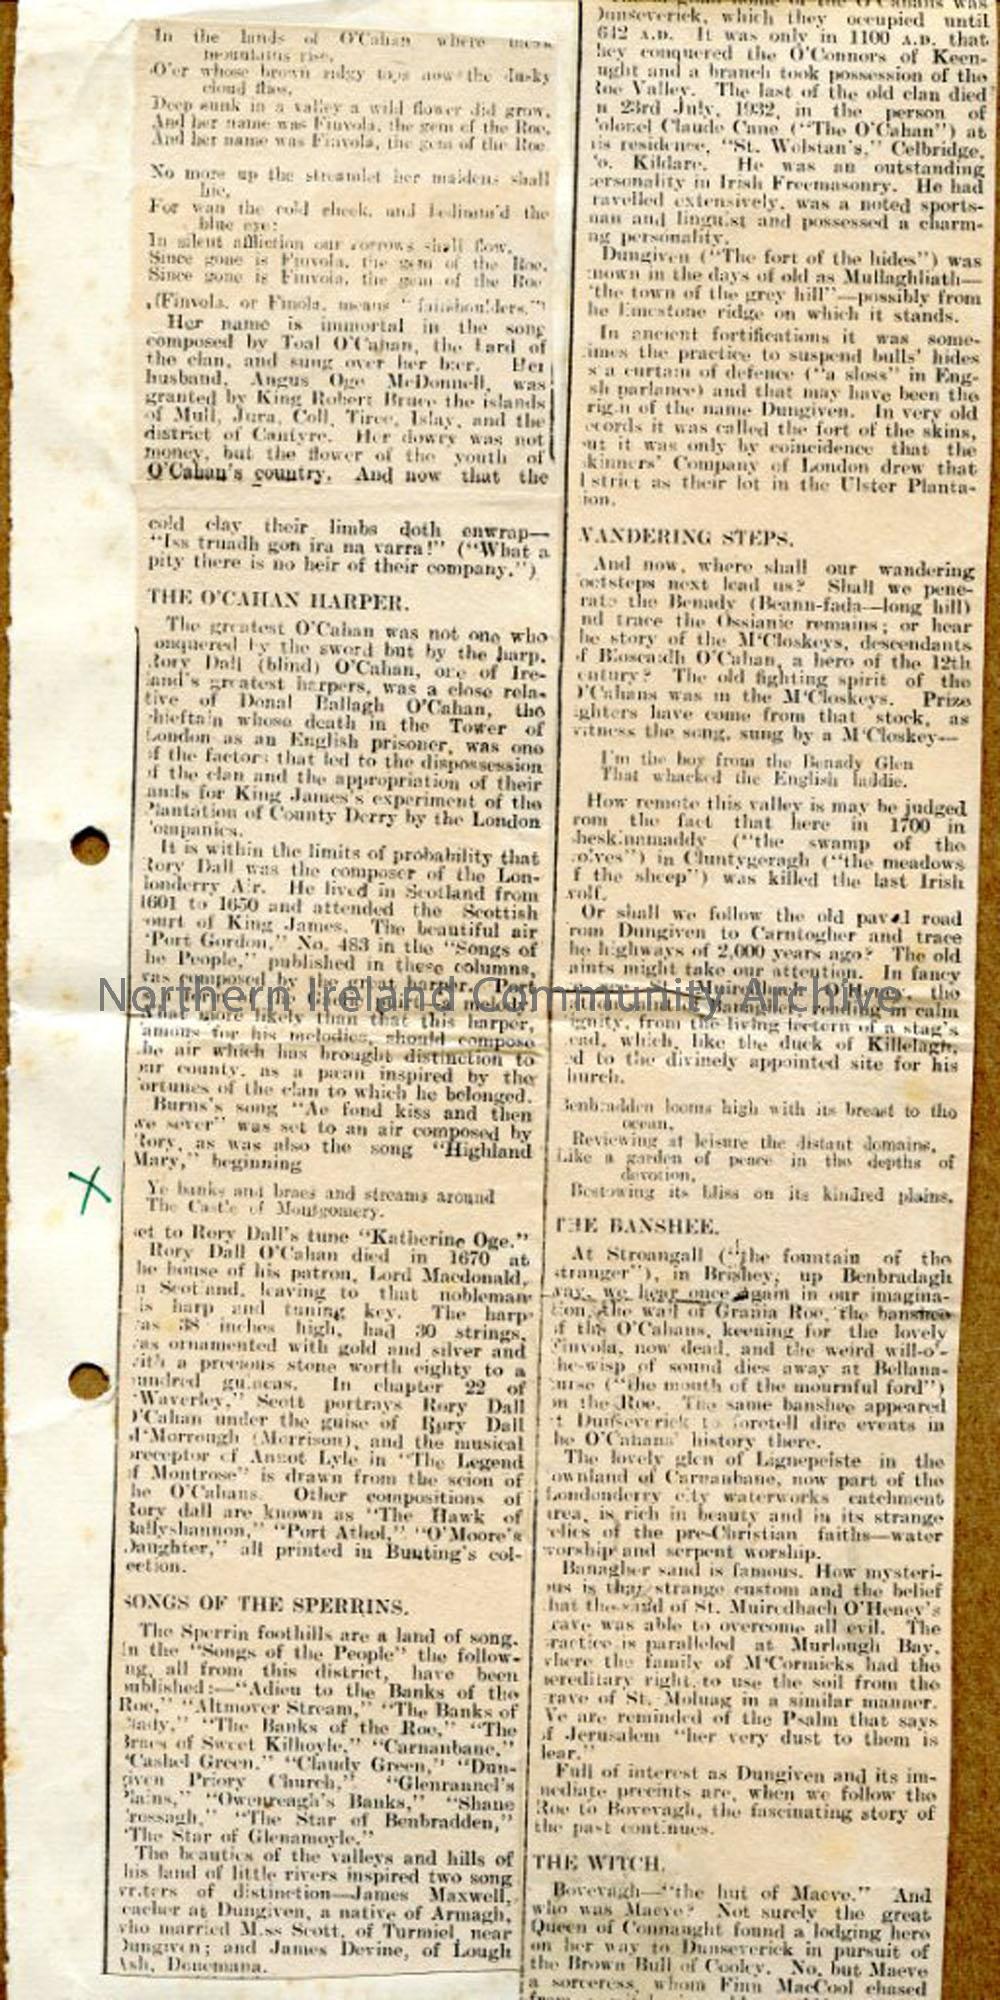 In the lands of O'Cahan where these
mountains rise,
O'er whose brown ridgy tops now the dusky
cloud flies,
Deep sunk in a valley a wild flower did grow,
And her name was Finvola, the gem of the Roe,
And her name was Finvola, the gem of the Roe.
No more up the streamlet her maidens shall
hie,
For wan the cold cheek, and bedimm'd the
blue eye:
In silent affliction our sorrows shall flow,
Since gone is Finvola, the gem of the Roe,
Since gone is Finvola, the gem of the Roe
(Finvola, or Finola, means "fairshoulders.")
Her name is immortal in the song
composed by Toal O'Cahan, the bard of
the clan, and sung over her bier. Her
husband, Angus Oge McDonnell, was
granted by King Robert Bruce the islands
of Mull, Jura, Coll, Tiree, Islay, and the
district of Cantyre. Her dowry was not
money, but the flower of the youth of
O'Cahan's country. And now that the
cold clay their limbs doth enwrap—
"Iss truadh gon ira na varra!" ("What a
pity there is no heir of their company.")
THE O'CAHAN HARPER.
The greatest O'Cahan was not one who
onquered by the sword but by the harp.
Rory Dall (blind) O'Cahan, one of Ire-
land's greatest harpers, was a close rela-
tive of Donal Ballagh O'Cahan, the
chieftain whose death in the Tower of
London as an English prisoner, was one
of the factors that led to the dispossession
of the clan and the appropriation of their
ands for King James's experiment of the
Plantation of County Derry by the London
ompanies.
It is within the limits of probability that
Rory Dall was the composer of the Lon-
londerry Air. He lived in Scotland from
1601 to 1650 and attended the Scottish
ourt of King James. The beautiful air
"Port Gordon," No. 483 in the "Songs of
he People," published in these columns,
was composed by the great harper. "Port"
Northern Ireland Community Archive
what more likely than that this harper,
amous for his melodies, should compose
he air which has brought distinction to
our county, as a paean inspired by the
ortunes of the clan to which he belonged.
Burns's song "Ae fond kiss and then
we sever" was set to an air composed by
Rory, as was also the song "Highland
Mary," beginning
Ye banks and braes and streams around
The Castle of Montgomery.
set to Rory Dall's tune "Katherine Oge."
Rory Dall O'Cahan died in 1670 at
he house of his patron, Lord Macdonald,
n Scotland, leaving to that nobleman
is harp and tuning key. The harp
as 38 inches high, had 30 strings,
as ornamented with gold and silver and
ith a precious stone worth eighty to a
undred guineas. In chapter 22 of
"Waverley," Scott portrays Rory Dall
O'Cahan under the guise of Rory Dall
M'Morrough (Morrison), and the musical
preceptor of Annot Lyle in "The Legend
of Montrose" is drawn from the scion of
he O'Cahans. Other compositions of
Rory dall are known as "The Hawk of
Ballyshannon," "Port Athol," "O'Moore's
Daughter," all printed in Bunting's col-
ection.
SONGS OF THE SPERRINS.
The Sperrin foothills are a land of song.
In the "Songs of the People" the follow-
ng, all from this district, have been
ublished:—"Adieu to the Banks of the
Roe," "Altmover Stream," "The Banks of
"The Banks of the Roe," "The
Braes of Sweet Kilhoyle," "Carnanbane,"
"Cashel Green," "Claudy Green," "Dun-
given Priory Church," "Glenrannel's
Plains," "Owenreagh's Banks," "Shane
rossagh," "The Star of Benbradden,"
"The Star of Glenamoyle."
The beauties of the valleys and hills of
his land of little rivers inspired two song
writers of distinction—James Maxwell,
eacher at Dungiven, a native of Armagh,
who married Miss Scott, of Turmiel, near
Dungiven; and James Devine, of Lough
Ash, Donemana.
of the O'Cahans was
Dunseverick, which they occupied until
642 A.D. It was only in 1100 A.D. that
hey conquered the O'Connors of Keen-
ught and a branch took possession of the
Roe Valley. The last of the old clan died
n 23rd July, 1932, in the person of
olonel Claude Cane ("The O'Cahan") at
is residence, "St. Wolstan's," Celbridge,
o. Kildare. He was an outstanding
ersonality in Irish Freemasonry. He had
ravelled extensively, was a noted sports-
man and linguist and possessed a charm-
ng personality.
Dungiven ("The fort of the hides") was
nown in the days of old as Mullaghliath—
"the town of the grey hill"—possibly from
he limestone ridge on which it stands.
In ancient fortifications it was some-
imes the practice to suspend bulls' hides
s a curtain of defence ("a sloss" in Eng-
sh parlance) and that may have been the
rigin of the name Dungiven. In very old
ecords it was called the fort of the skins,
ut it was only by coincidence that the
kinners' Company of London drew that
istrict as their lot in the Ulster Planta-
ion.
WANDERING STEPS.
And now, where shall our wandering
ootsteps next lead us? Shall we pene-
rate the Benady (Beann-fada—long hill)
nd trace the Ossianic remains; or hear
he story of the M'Closkeys, descendants
f Bloscaidh O'Cahan, a hero of the 12th
entury? The old fighting spirit of the
O'Cahans was in the M'Closkeys. Prize
ighters have come from that stock, as
witness the song, sung by a M'Closkey—
I'm the boy from the Benady Glen
That whacked the English laddie.
How remote this valley is may be judged
rom the fact that here in 1700 in
heskinamaddy ("the swamp of the
olves") in Cluntygeragh ("the meadows
f the sheep") was killed the last Irish
wolf.
Or shall we follow the old paved road
rom Dungiven to Carntogher and trace
he highways of 2,000 years ago? The old
aints might take our attention. In fancy
we see Muiredhach O'Heney, the
Banagher, reading in calm
ignity, from the living lectern of a stag's
ead, which, like the duck of Killelagh,
ed to the divinely appointed site for his
hurch.
Benbradden looms high with its breast to the
ocean,
Reviewing at leisure the distant domains,
Like a garden of peace in the depths of
devotion,
Bestowing its bliss on its kindred plains.
THE BANSHEE.
At Stroangall ("the fountain of the
stranger"), in Brishey, up Benbradagh
way, we hear once again in our imagina-
tion, the wail of Grania Roe, the banshee
of the O'Cahans, keening for the lovely
Finvola, now dead, and the weird will-o'-
he-wisp of sound dies away at Bellana-
urse ("the mouth of the mournful ford")
on the Roe. The same banshee appeared
t Dunseverick to foretell dire events in
he O'Cahans' history there.
The lovely glen of Lignepeiste in the
ownland of Carnanbane, now part of the
Londonderry city waterworks catchment
area, is rich in beauty and in its strange
elics of the pre-Christian faiths—water
worship and serpent worship.
Banagher sand is famous. How mysteri-
us is that strange custom and the belief
hat the sand of St. Muiredhach O'Heney's
rave was able to overcome all evil. The
ractice is paralleled at Murlough Bay,
where the family of M'Cormicks had the
hereditary right to use the soil from the
rave of St. Moluag in a similar manner.
We are reminded of the Psalm that says
of Jerusalem "her very dust to them is
lear."
Full of interest as Dungiven and its im-
mediate precints are, when we follow the
Roe to Bovevagh, the fascinating story of
the past continues.
THE WITCH.
Bovevagh—"the hut of Maeve." And
who was Maeve? Not surely the great
Queen of Connaught found a lodging here
on her way to Dunseverick in pursuit of
the Brown Bull of Cooley. No, but Maeve
a sorceress, whom Finn MacCool chased